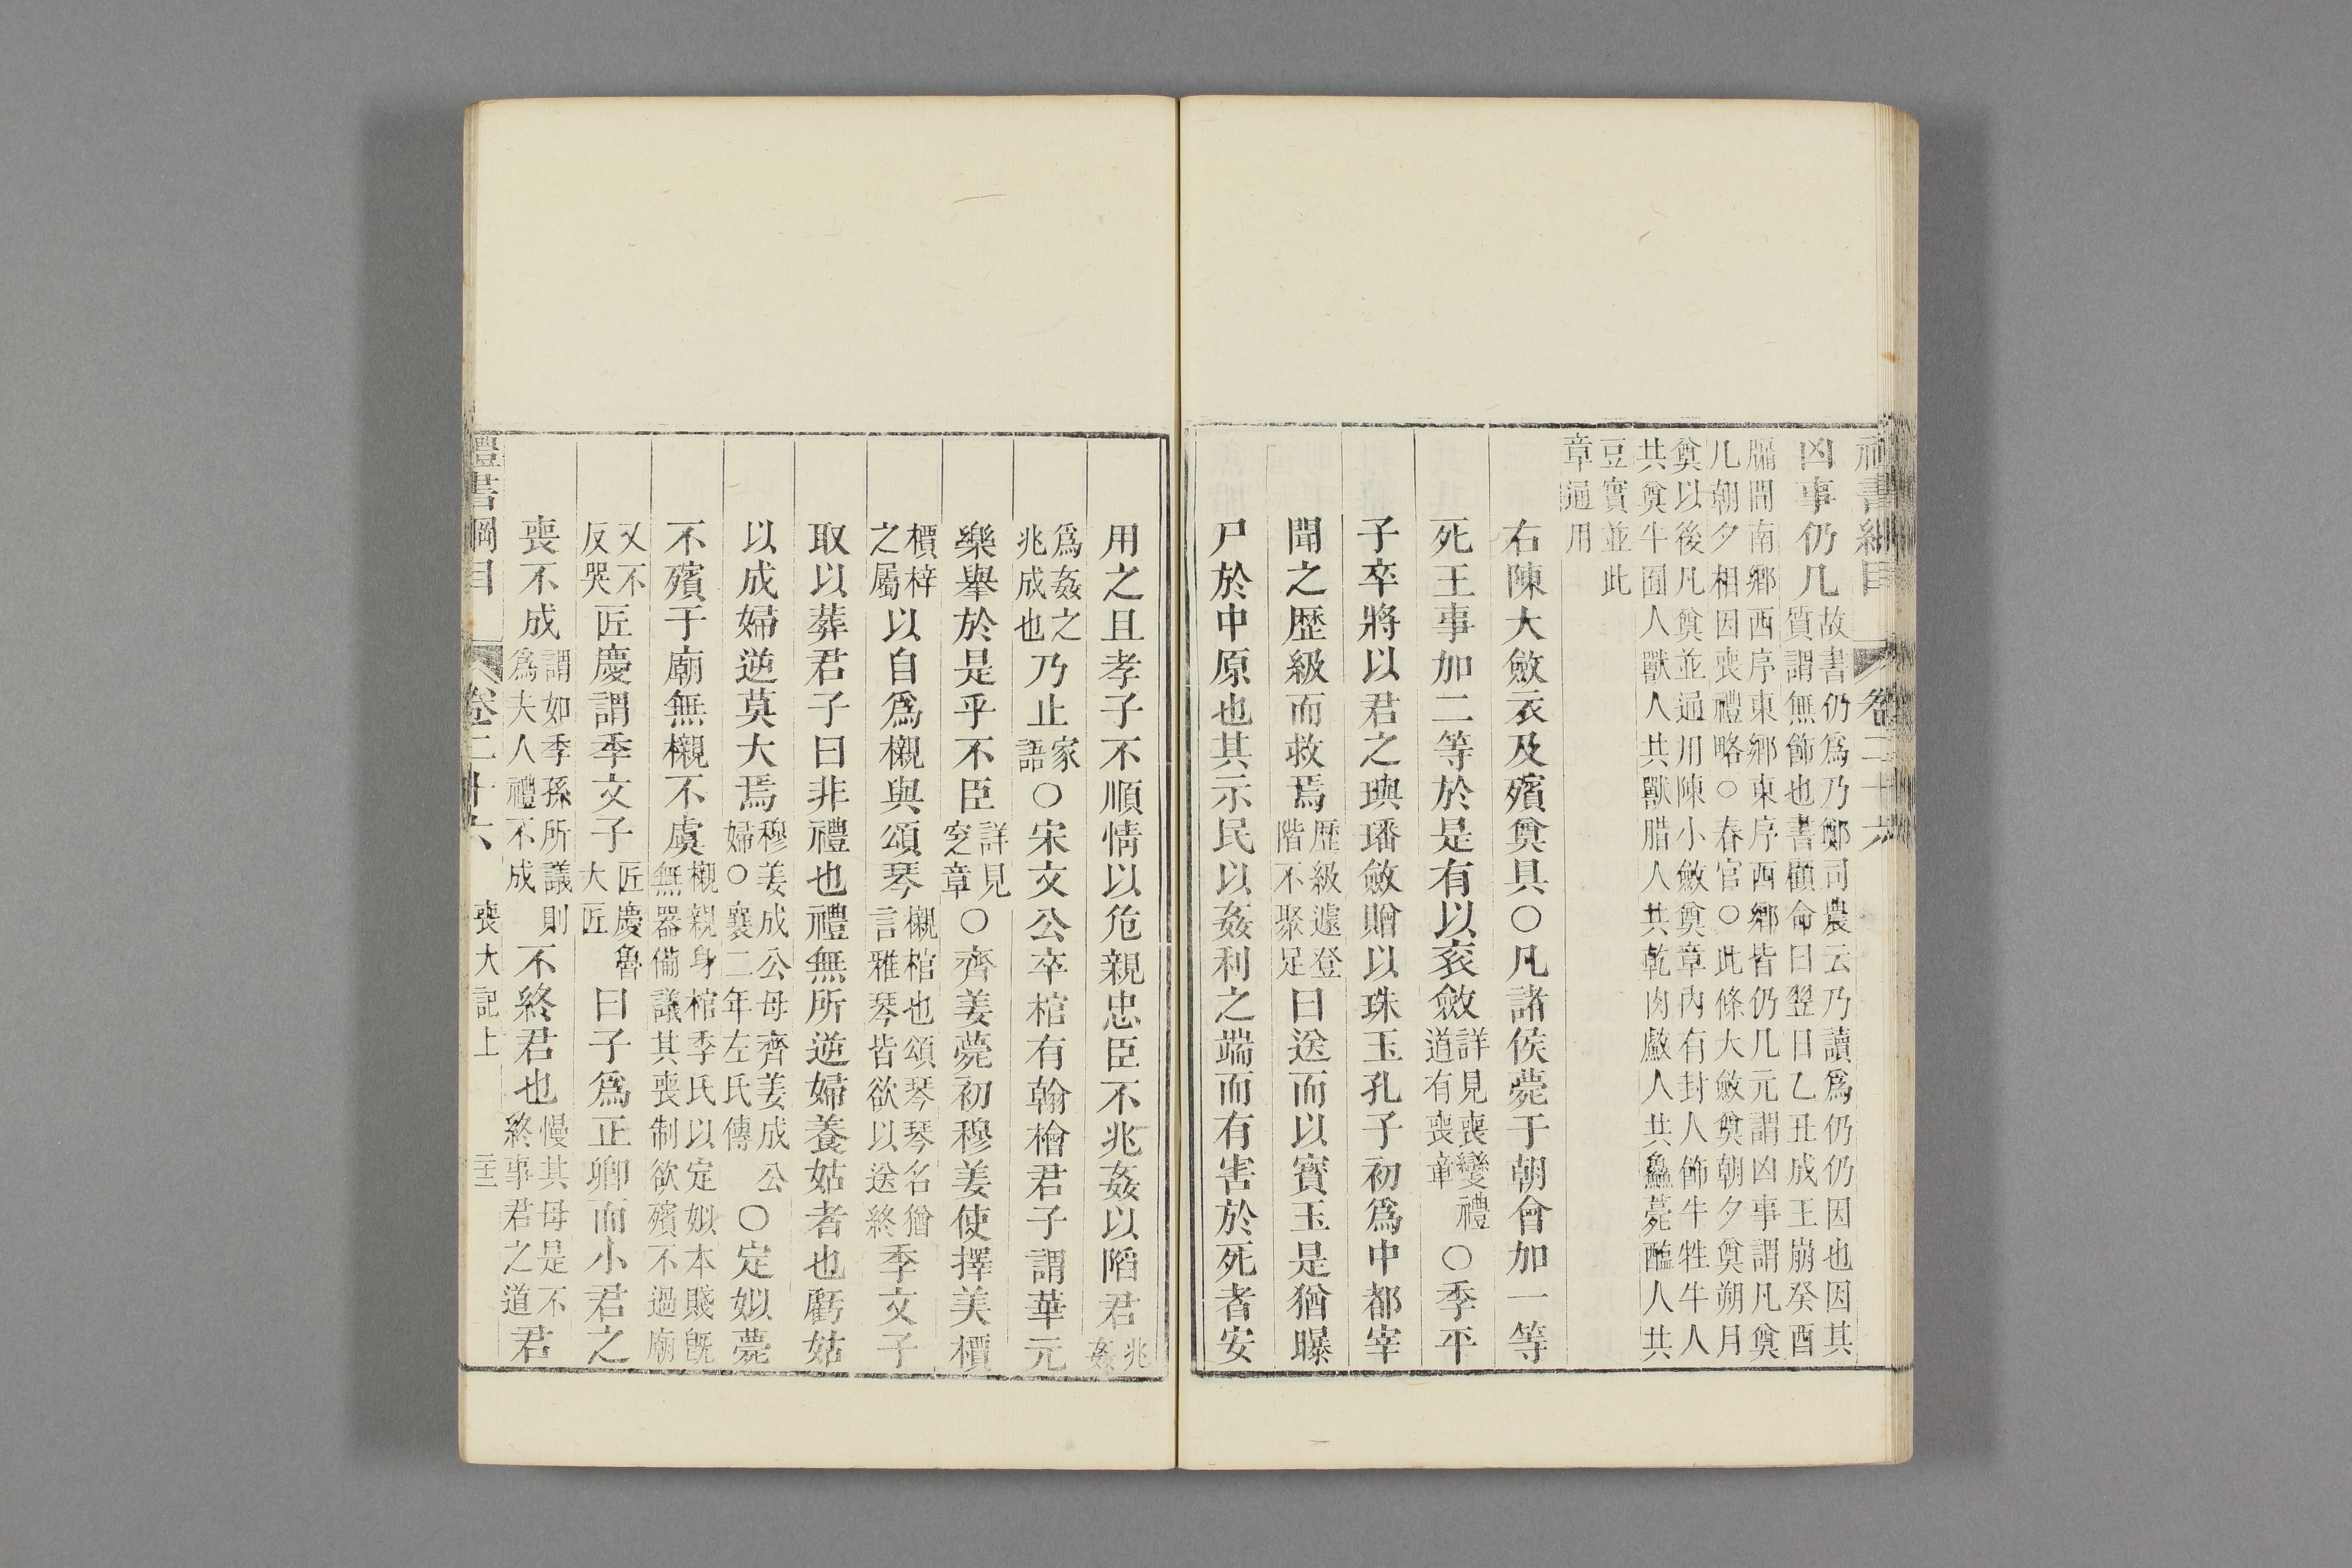 禮書綱目 卷二十六
凶事仍几
故書仍爲乃鄭司農云乃讀爲仍仍因也因其
質謂無飾也書顧命曰翌日乙丑成王崩癸酉
牖間南鄉西序東鄉東序西鄉皆仍几元謂凶事謂凡奠
几朝夕相因喪禮略○春官○此條大斂奠朝夕奠朔月
奠以後凡奠並通用陳小斂奠章內有封人飾牛牲牛人
共奠牛囿人獸人共獸腊人共乾肉䱷人共鱻薧醢人共
豆實並此
章通用
右陳大斂衣及殯奠具○凡諸侯薨于朝會加一等
死王事加二等於是有以衮斂詳見喪變禮道有喪章○季平
子卒將以君之璵璠斂贈以珠玉孔子初爲中都宰
聞之歴級而救焉歴級遽登階不聚足曰送而以寶玉是猶曝
尸於中原也其示民以姦利之端而有害於死者安
用之且孝子不順情以危親忠臣不兆姦以陷君兆姦
爲姦之兆成也乃止家語○宋文公卒棺有翰檜君子謂華元
樂舉於是乎不臣詳見窆章○齊姜薨初穆姜使擇美檟
檟梓之屬以自爲櫬與頌琴櫬棺也頌琴琴名猶言雅琴皆欲以送終季文子
取以葬君子曰非禮也禮無所逆婦養姑者也虧姑
以成婦逆莫大焉穆姜成公母齊姜成公婦○襄二年左氏傳○定姒薨
不殯于廟無櫬不虞櫬親身棺季氏以定姒本賤旣無器備議其喪制欲殯不過廟
又不反哭匠慶謂季文子匠慶魯大匠曰子爲正卿而小君之
喪不成謂如季孫所議則爲夫人禮不成不終君也慢其母是不終事君之道君
禮書綱目 卷二十六 喪大記上 三十二